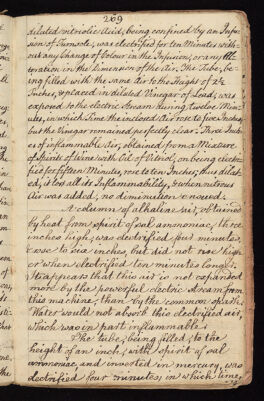 269
diluted vitriolic Acid, being confined by an Infu-
sion of Turnsole, was electrified for ten Minutes with-
out any Change of Colour in the Infusion, or any Al-
teration in the Dimension of the Air. The Tube, be-
ing filled with the same Air to the Height of 2½
Inches, & placed in diluted Vinegar of Lead, was
exposed to the electric Stream during twelve Min-
utes, in which Time the inclosed Air rose to five Inches,
but the Vinegar remained perfectly clear. Three Inch-
es of inflammable Air, obtained from a Mixture
of Spirit of Wine with Oil of Vitriol, on being electri-
fied for fifteen Minutes, rose to ten Inches; thus dilat-
ed, it lost all its Inflammability, & when nitrous
Air was added, no diminution ensued.
A column of alkaline air, obtained
by heat from spirit of sal ammoniac, three
inches high, was electrified four minutes
& rose to six inches, but did not rise high-
er when electrified ten minutes longer.
It appears that this air is not expanded
more by the powerful electric stream from
this machine, than by the common spark.
Water would not absorb this electrified air,
which was in part inflammable.
The tube, being filled, to the
height of an inch, with spirit of sal
ammoniac, and inverted in mercury, was
electrified four minutes, in which time